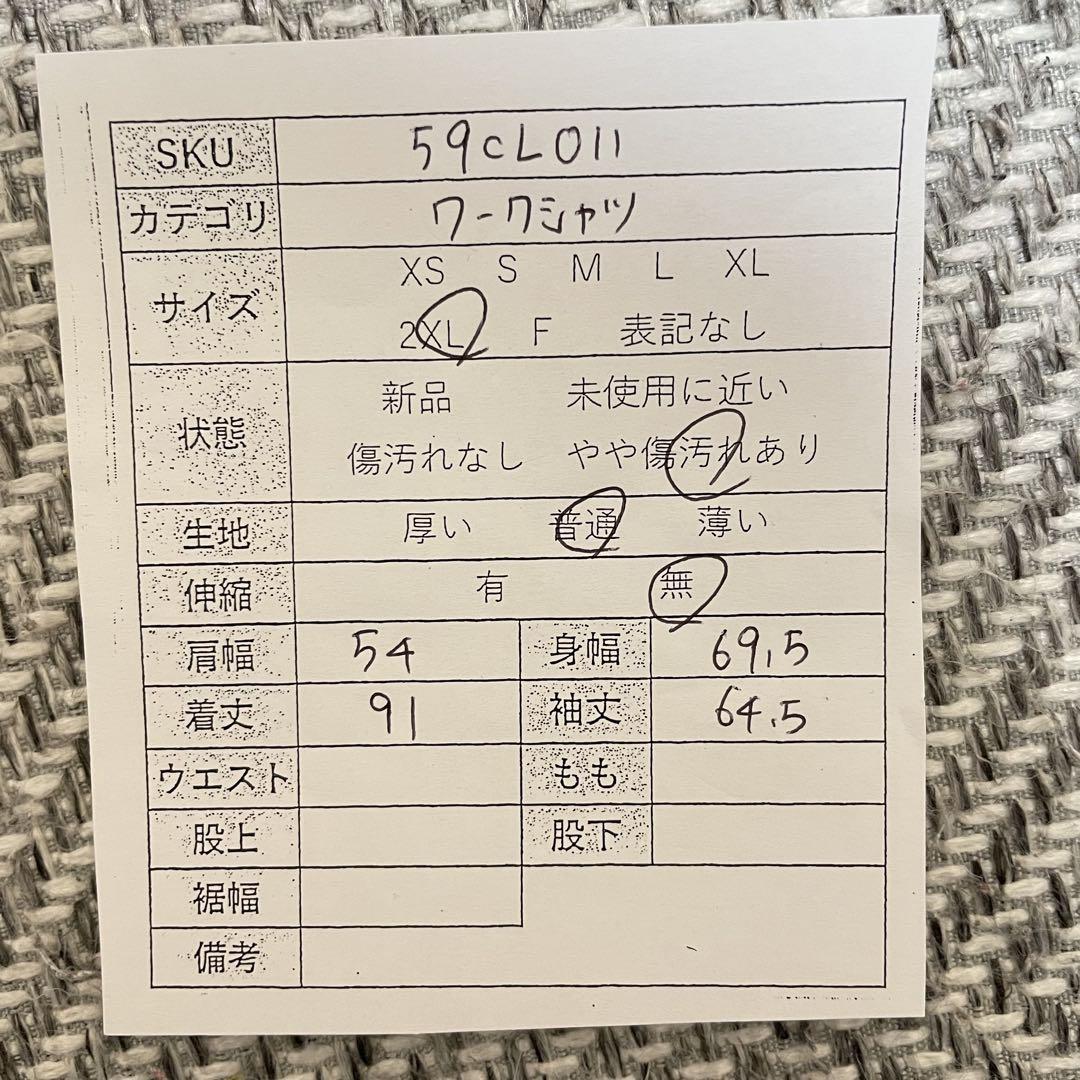 SKU 59cL011
カテゴリ ワークシャツ
サイズ XS S M L XL
2XL F 表記なし
状態 新品 未使用に近い
傷汚れなし やや傷汚れあり
生地 厚い 普通 薄い
伸縮 有 無
肩幅 54 身幅 69.5
着丈 91 袖丈 64.5
ウエスト もも
股上 股下
裾幅
備考